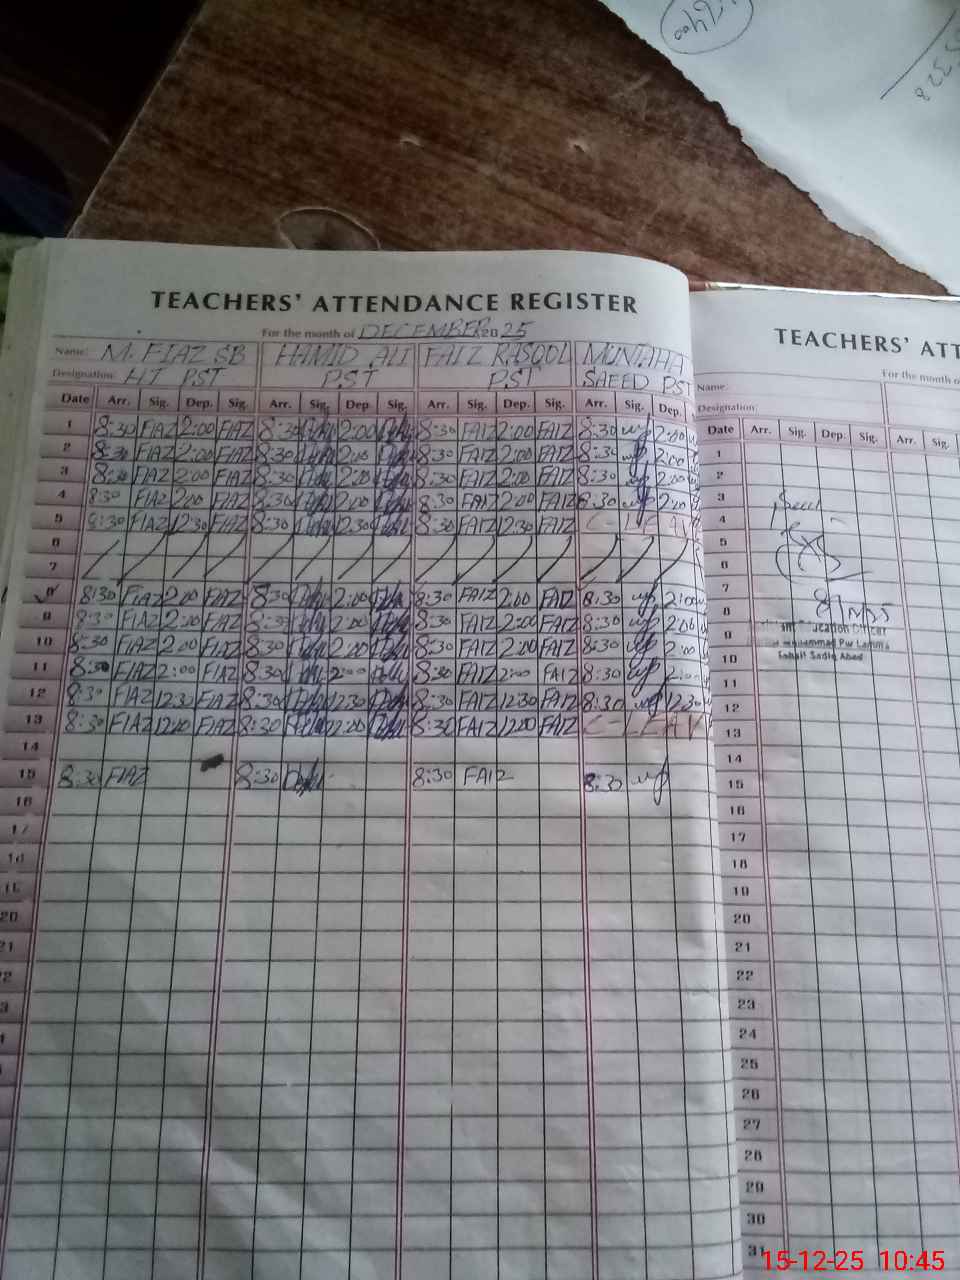 328
TEACHERS' ATTENDANCE REGISTER
For the month of DECEMBER 2025
Name: M. FIAZ SB HAMID ALI FAIZ RASOOL MUNTAHA
Designation: HT PST PST PST SAEED PST
Date Arr. Sig. Dep. Sig. Arr. Sig. Dep. Sig. Arr. Sig. Dep. Sig. Arr. Sig. Dep.
1 8:30 FIAZ 2:00 FIAZ 8:30 2:00 8:30 FAIZ 2:00 FAIZ 8:30 2:00
2 8:30 FIAZ 2:00 FIAZ 8:30 2:00 8:30 FAIZ 2:00 FAIZ 8:30 2:00
3 8:30 FIAZ 2:00 FIAZ 8:30 2:00 8:30 FAIZ 2:00 FAIZ 8:30 2:00
4 8:30 FIAZ 2:00 FIAZ 8:30 2:00 8:30 FAIZ 2:00 FAIZ 8:30 2:00
5 8:30 FIAZ 12:30 FIAZ 8:30 12:30 8:30 FAIZ 12:30 FAIZ C-LEAV
6
7
8 8:30 FIAZ 2:00 FIAZ 8:30 2:00 8:30 FAIZ 2:00 FAIZ 8:30 2:00
9 8:30 FIAZ 2:00 FIAZ 8:30 2:00 8:30 FAIZ 2:00 FAIZ 8:30 2:00
10 8:30 FIAZ 2:00 FIAZ 8:30 2:00 8:30 FAIZ 2:00 FAIZ 8:30 2:00
11 8:30 FIAZ 2:00 FIAZ 8:30 2:00 8:30 FAIZ 2:00 FAIZ 8:30
12 8:30 FIAZ 12:30 FIAZ 8:30 12:30 8:30 FAIZ 12:30 FAIZ 8:30 12:30
13 8:30 FIAZ 12:00 FIAZ 8:30 12:00 8:30 FAIZ 12:00 FAIZ C-LEAV
14
15 8:30 FIAZ 8:30 8:30 FAIZ 8:30
16
17
18
20
21
TEACHERS' ATT
For the month o
Name:
Designation:
Date Arr. Sig. Dep. Sig. Arr. Sig.
1
2
3
4
5
6
7
8
9
10
11
12
13
14
15
16
17
18
19
20
21
22
23
24
25
26
27
28
29
30
31
Officer
Sadiq Abad
15-12-25 10:45